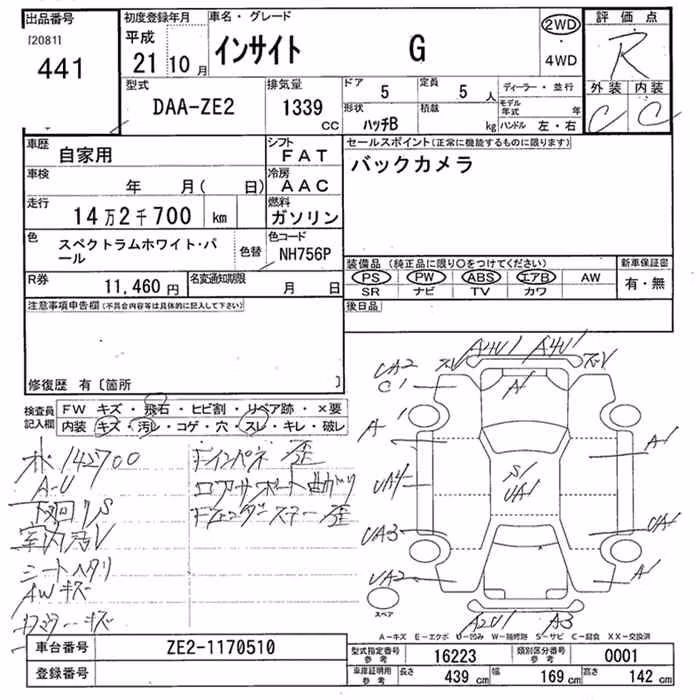 出品番号
[20811
441
初度登録年月
平成
21 10 月
車名・グレード
インサイト G
2WD
・
4WD
評価点
R
外装 内装
C C
型式
DAA-ZE2
排気量
1339
CC
ドア
5
定員
5 人
形状
ハッチB
積載
kg
ディーラー・並行
モデル年式 年
ハンドル 左・右
車歴
自家用
シフト
FAT
車検
年 月( 日)
冷房
AAC
走行
14万2千700 km
燃料
ガソリン
色
スペクトラムホワイト・パ
ール
色替
色コード
NH756P
R券
11,460 円
名変通知期限
月 日
セールスポイント(正常に機能するものに限ります)
バックカメラ
装備品(純正品に限り○をつけてください)
PS PW ABS エアB AW
SR ナビ TV カワ
新車保証書
有・無
後日品
注意事項申告欄(不具合内容等は具体的に記入して下さい)
修復歴 有〔箇所 〕
検査員
記入欄
FW キズ・飛石・ヒビ割・リペア跡・×要
内装 キズ・汚レ・コゲ・穴・スレ・キレ・破レ
142700
A-U
下回りS
室内汚レ
シートヘタリ
AWキズ
Fインパネ歪
コアサポート曲がり
A4U1 A4U1
UA2
C1
A1
A1
A1
UA4
S1
UA1
UA3
UA1
UA2
A1
A2U1 A3
スペア
A-キズ E-エクボ U-凹み W-補修跡 S-サビ C-腐食 XX-交換済
車台番号
ZE2-1170510
登録番号
型式指定番号
参考
16223
類別区分番号
参考
0001
車庫証明用
参考
長さ
439 cm
幅
169 cm
高さ
142 cm